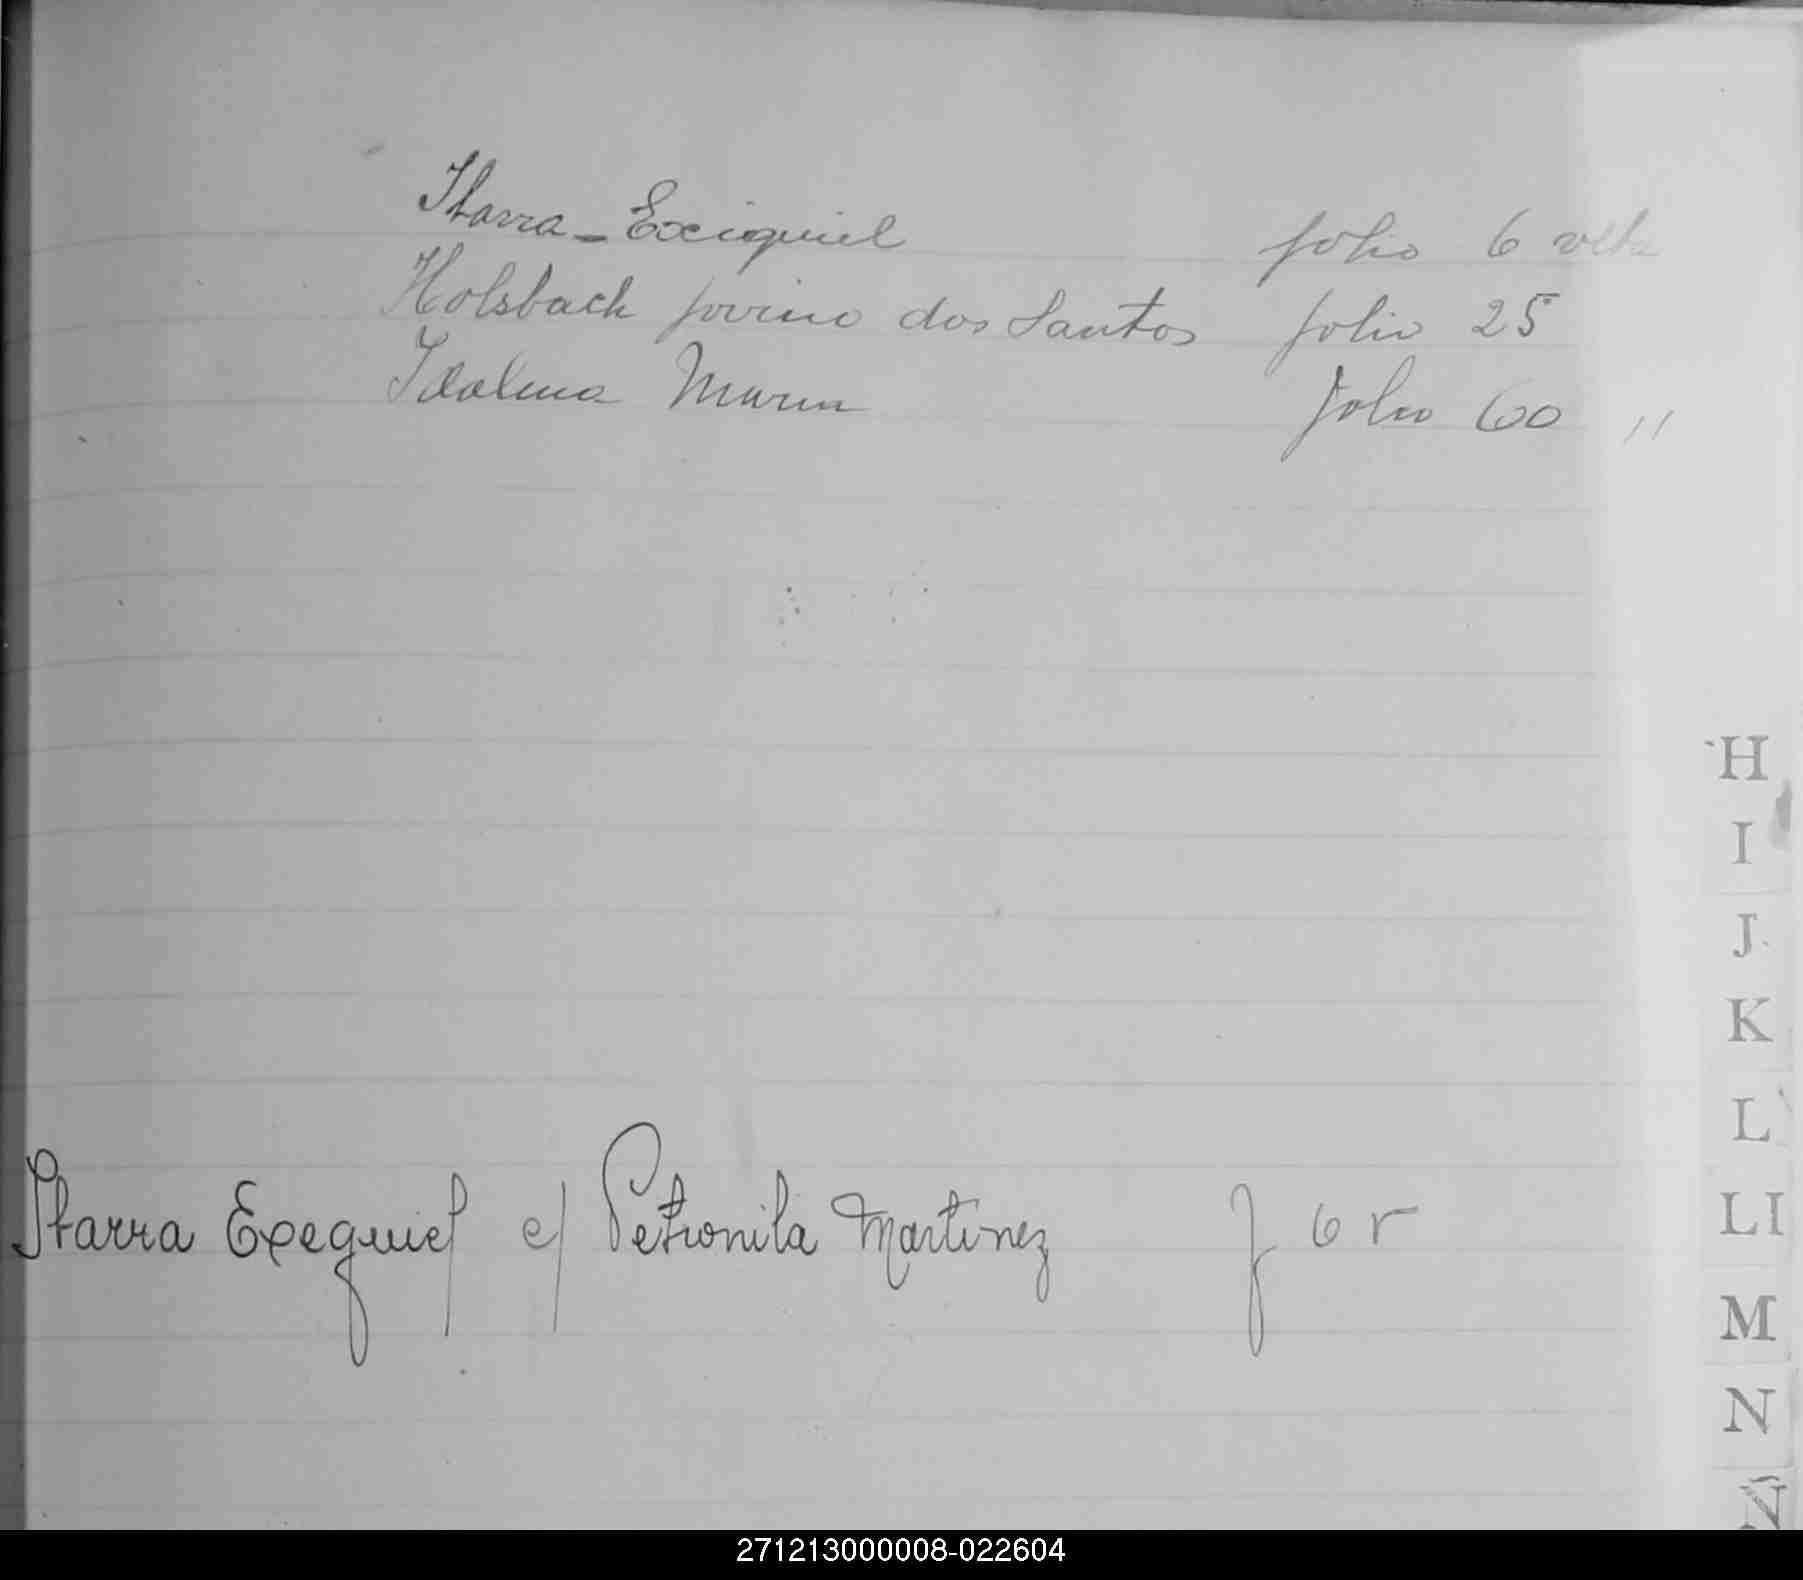 Ibarra - Exiquiel folio 6 vlta
Holsbach Jovino dos Santos folio 25
Idalina Maria folio 60 "
H
I
J
K
L
Ibarra Exequiel c/ Petronila Martinez f 6 v
Ll
M
N
Ñ
271213000008-022604